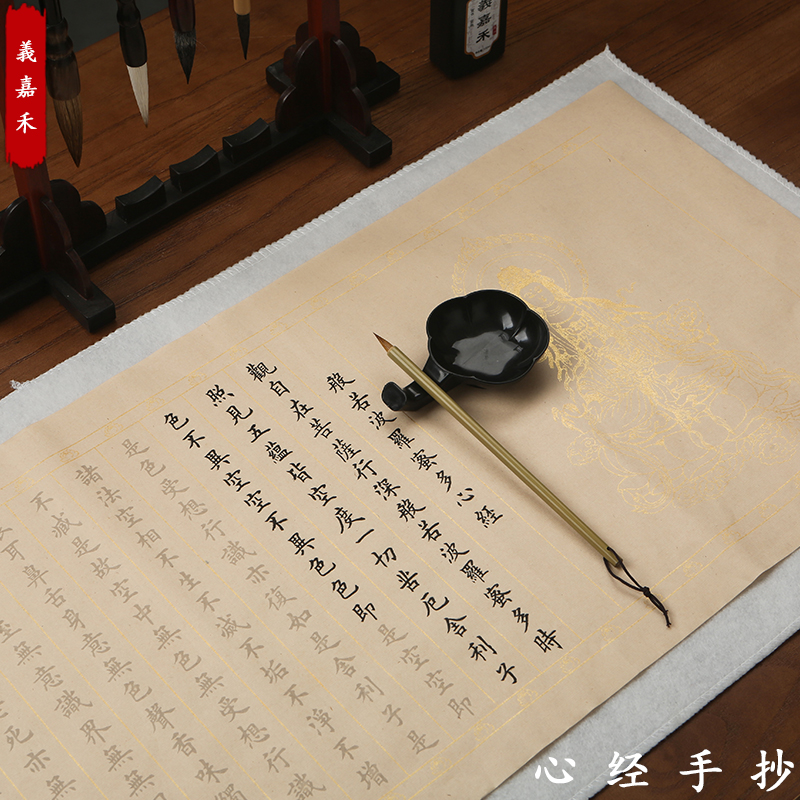 義嘉禾
義嘉禾
般若波羅蜜多心經
觀自在菩薩行深般若波羅蜜多時
照見五蘊皆空度一切苦厄舍利子
色不異空空不異色色即是空空即
是色受想行識亦復如是舍利子是
諸法空相不生不滅不垢不淨不增
不減是故空中無色無受想行識
耳鼻舌身意無色聲香味觸
無意識界無無
死亦無
心经手抄